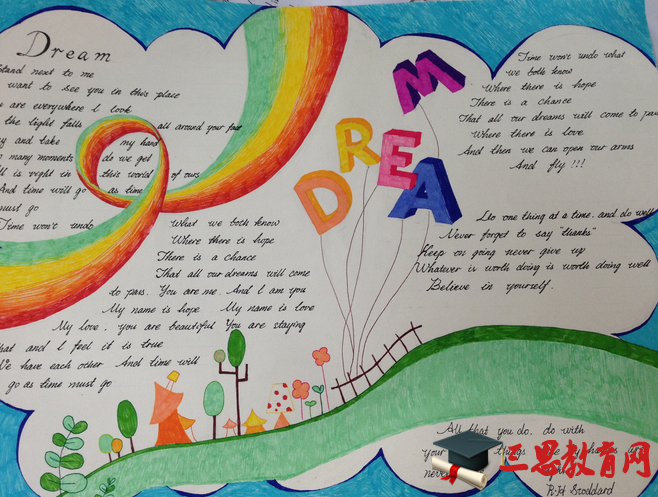 Dream
Stand next to me
want to see you in this place
are everywhere I look
the light falls all around your feet
and take my hand
many moments do we get
ll is right in this world of ours
And time will go as time
must go
Time won't undo
What we both know
Where there is hope
There is a chance
That all our dreams will come
to pass. You are me. And I am you
My name is hope My name is love
My love, you are beautiful You are staying
that and I feel it is true
We have each other And time will
go as time must go
DREAM
Time won't undo what
we both know
Where there is hope
There is a chance
That all our dreams will come to pass
Where there is love
And then we can open our arms
And fly!!!
Do one thing at a time. and do well
Never forget to say "thanks"
Keep on going never give up
Whatever is worth doing is worth doing well
Believe in yourself.
All that you do, do with
your
never
R·H Stoddard
三思教育网